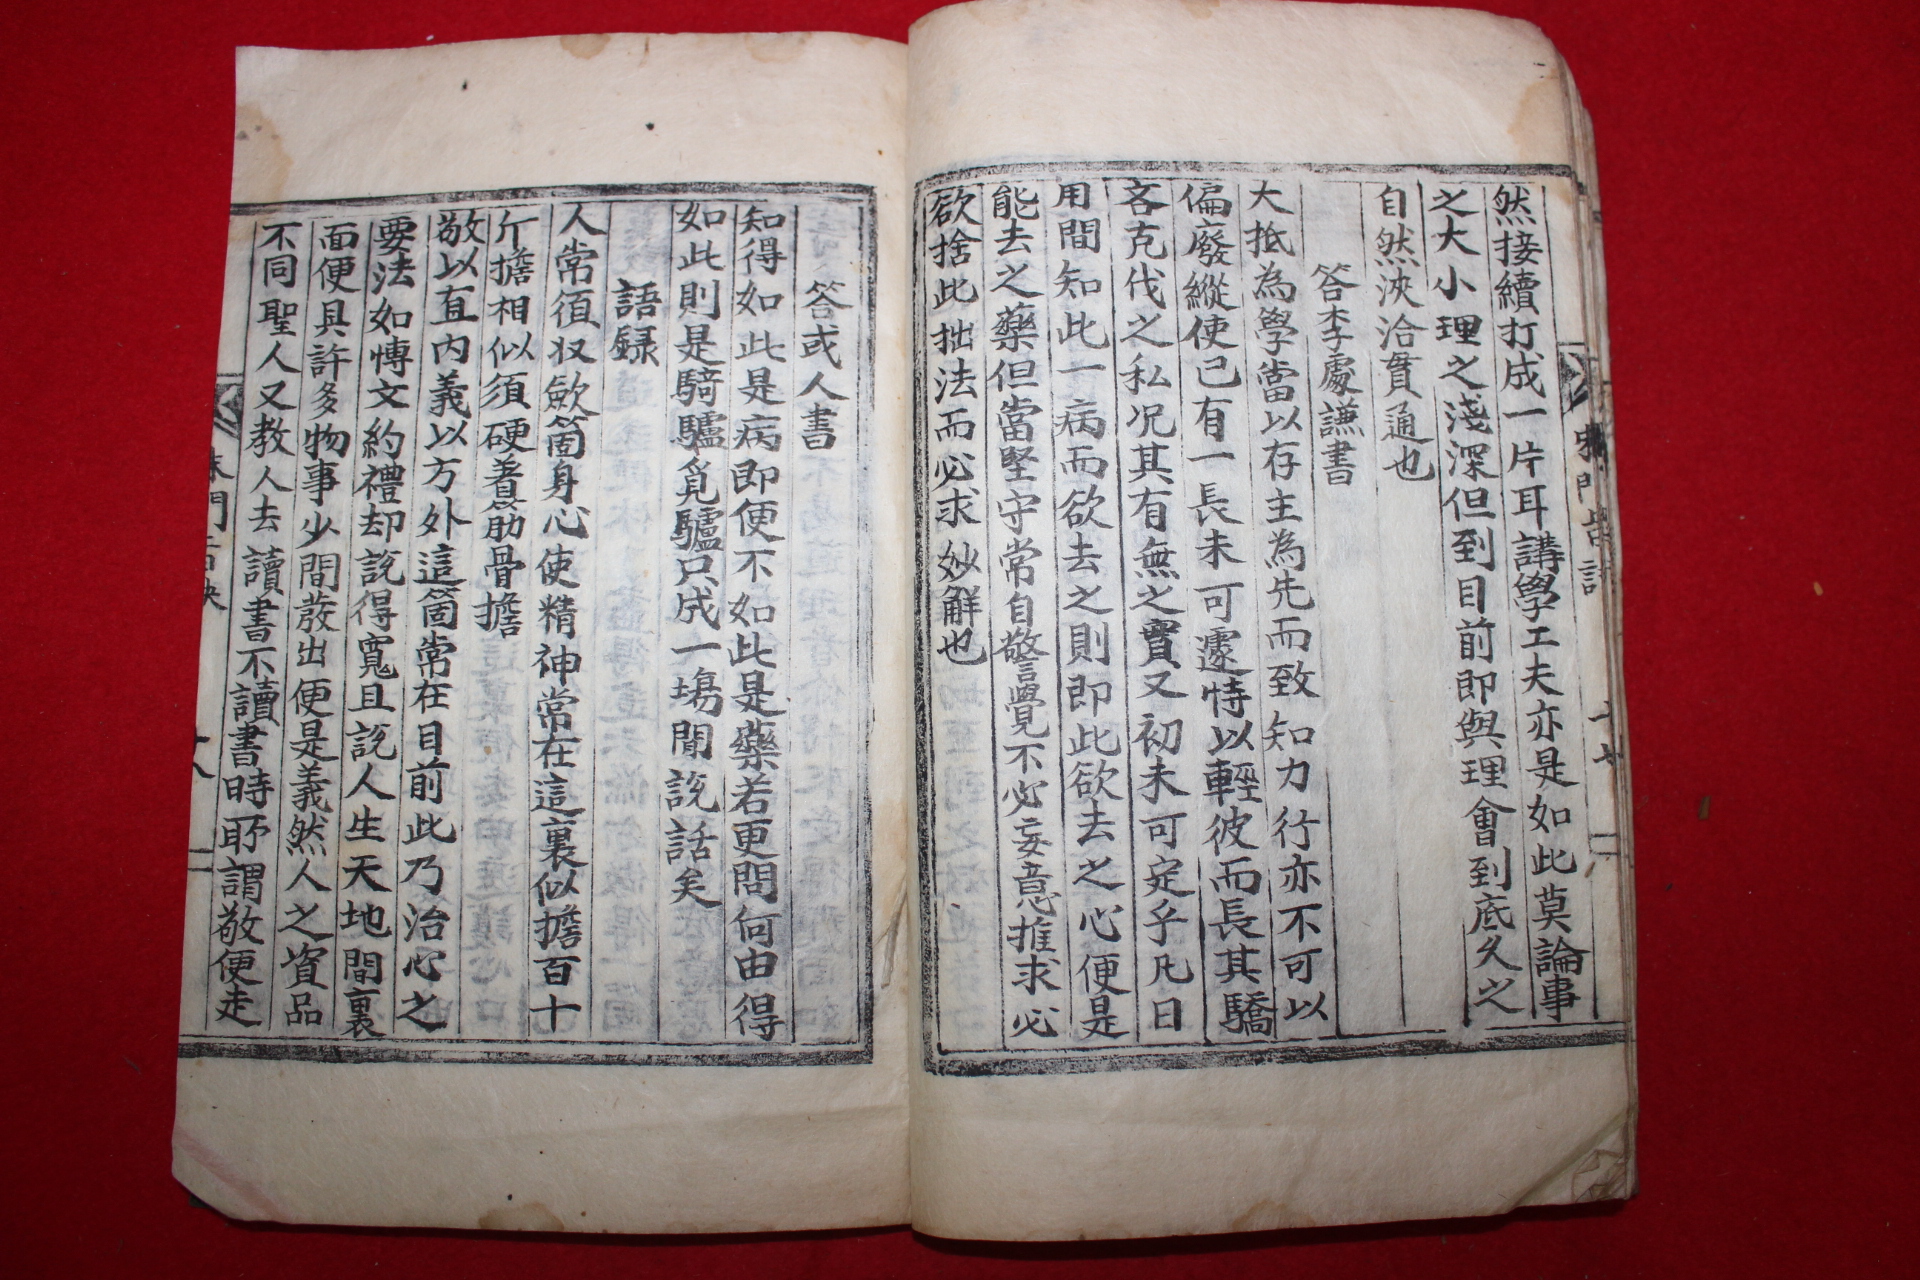 然接續打成一片耳講學工夫亦是如此莫論事
之大小理之淺深但到目前即與理會到底久之
自然浹洽貫通也
答李處謙書
大抵為學當以存主為先而致知力行亦不可以
偏廢縱使已有一長未可遽恃以輕彼而長其驕
吝克伐之私况其有無之實又初未可定乎凡日
用間知此一病而欲去之則即此欲去之心便是
能去之藥但當堅守常自警覺不必妄意推求必
欲捨此拙法而必求妙解也
答或人書
知得如此是病即便不如此是藥若更問何由得
如此則是騎驢覓驢只成一場閒說話矣
語録
人常須収歛箇身心使精神常在這裏似擔百十
斤擔相似須硬着葋骨擔
敬以直内義以方外這箇常在目前此乃治心之
要法如博文約禮却說得寬且說人生天地間裏
面便具許多物事少間發出便是義然人之資品
不同聖人又教人去讀書不讀書時所謂敬便走
朱門旨訣
十七
朱門旨訣
十八